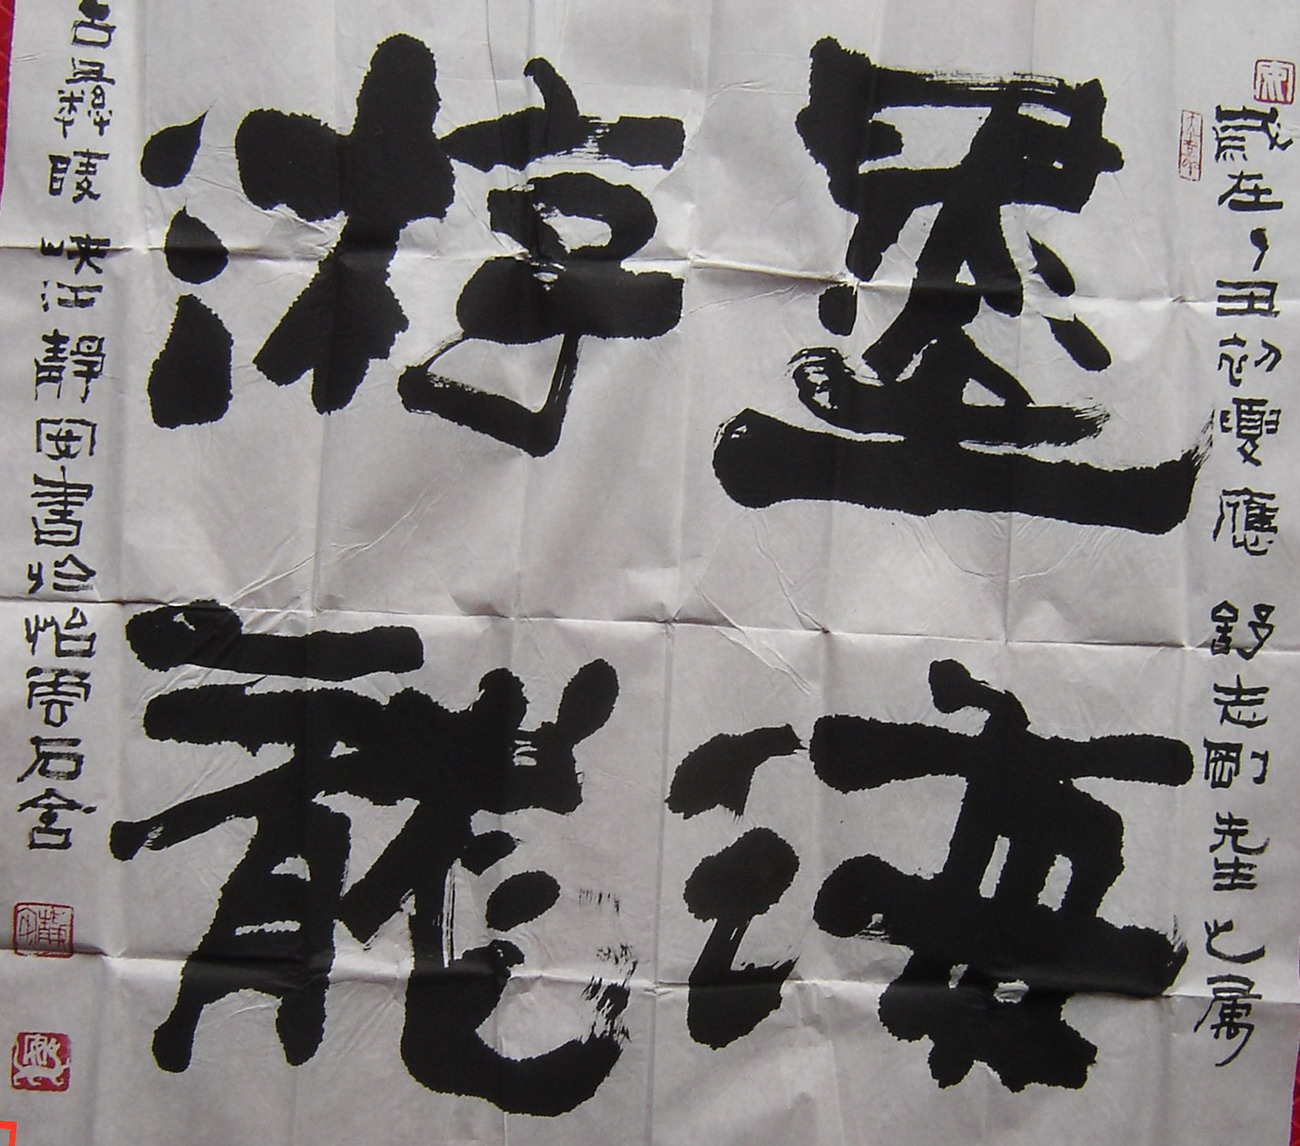 歲在丁丑初夏應舒志剛先生之属
墨海
游龍
古彝陵峽江靜安書於怡雲石舍